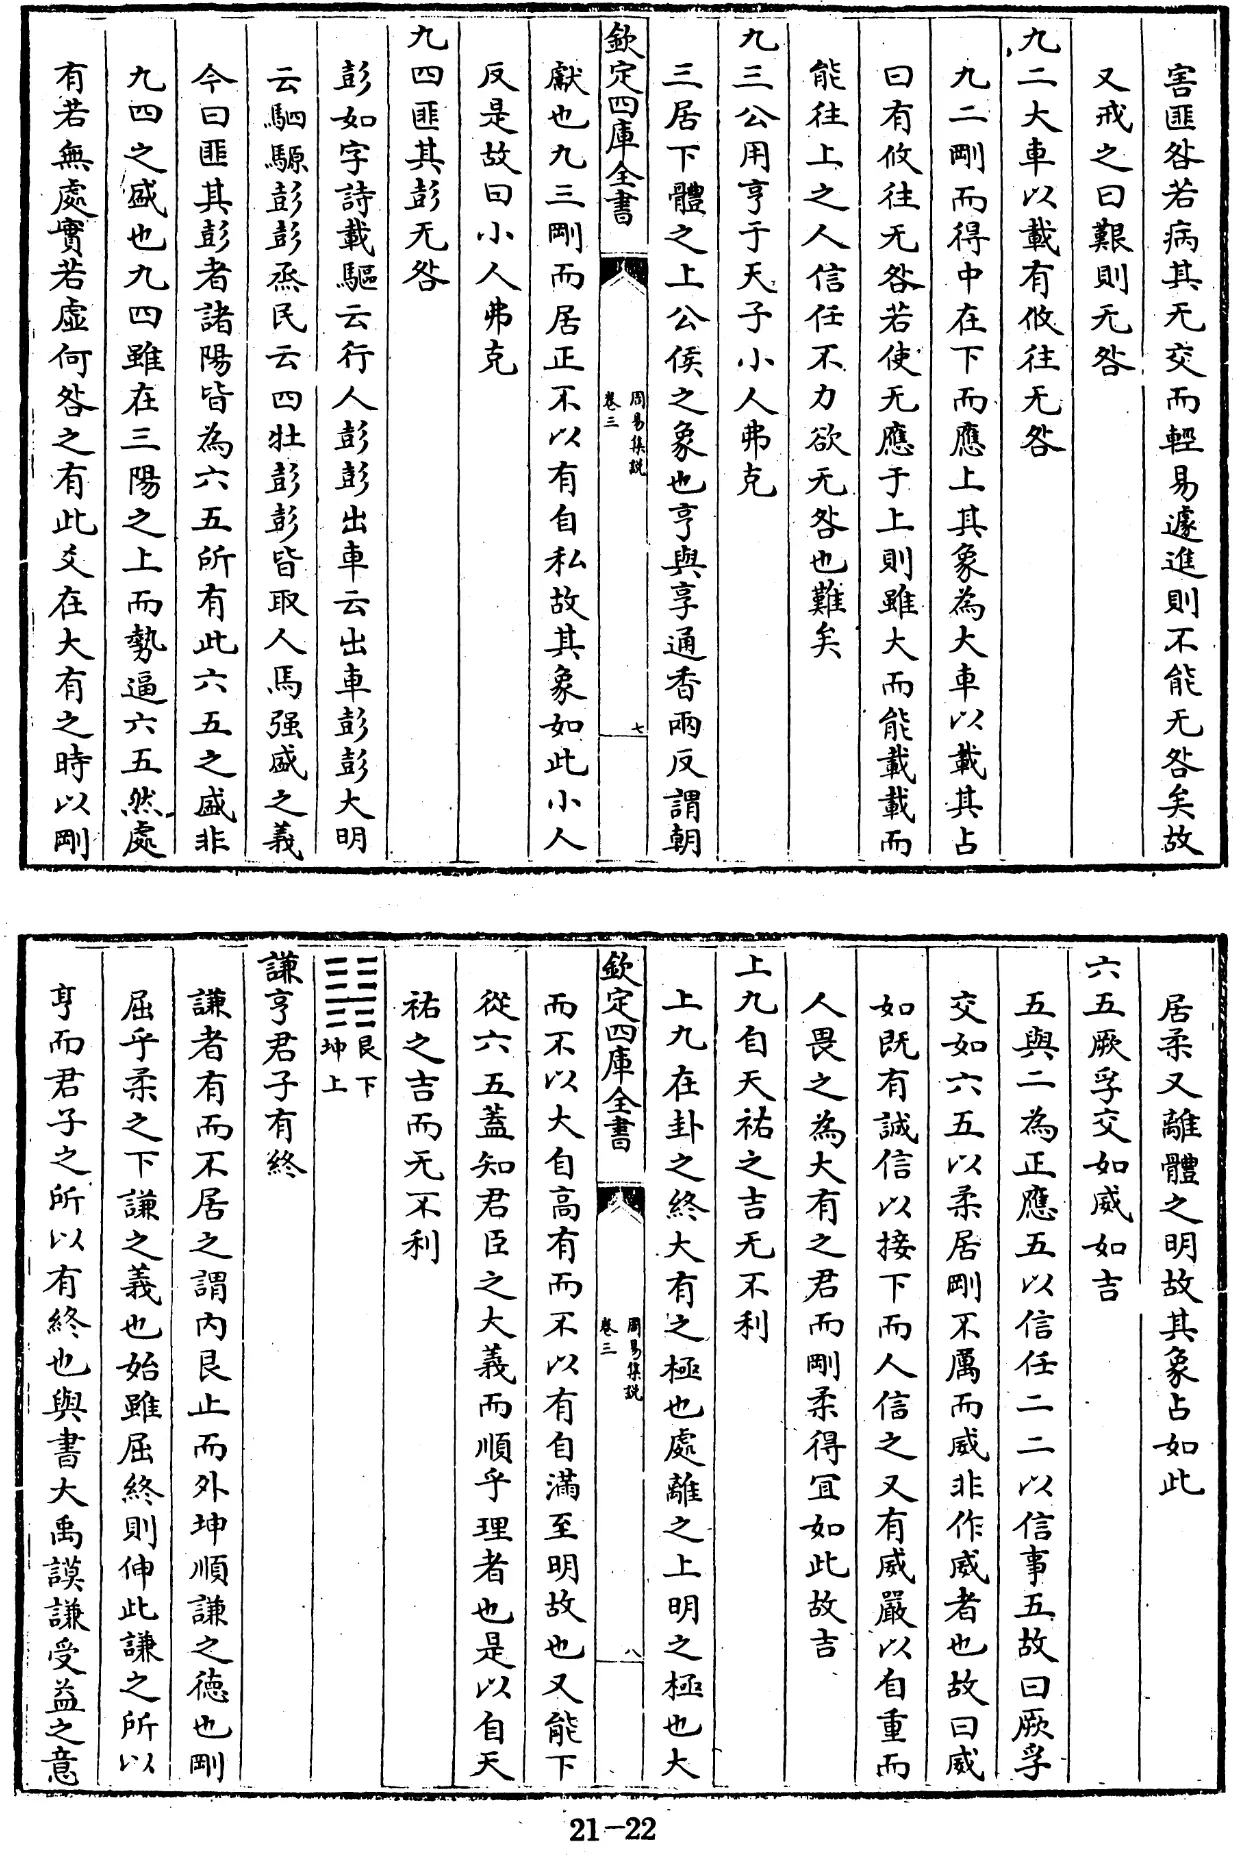 害匪咎若病其无交而輕易遽進則不能无咎矣故
又戒之曰艱則无咎
九二大車以載有攸往无咎
九二剛而得中在下而應上其象為大車以載其占
曰有攸往无咎若使无應于上則雖大而能載載而
能往上之人信任不力欲无咎也難矣
九三公用亨于天子小人弗克
三居下體之上公侯之象也亨與享通香兩反謂朝
欽定四庫全書
周易集説
卷三
七
獻也九三剛而居正不以有自私故其象如此小人
反是故曰小人弗克
九四匪其彭无咎
彭如字詩載驅云行人彭彭出車云出車彭彭大明
云駟騵彭彭烝民云四牡彭彭皆取人馬强盛之義
今曰匪其彭者諸陽皆為六五所有此六五之盛非
九四之盛也九四雖在三陽之上而勢逼六五然處
有若無處實若虛何咎之有此爻在大有之時以剛
居柔又離體之明故其象占如此
六五厥孚交如威如吉
五與二為正應五以信任二二以信事五故曰厥孚
交如六五以柔居剛不厲而威非作威者也故曰威
如既有誠信以接下而人信之又有威嚴以自重而
人畏之為大有之君而剛柔得宜如此故吉
上九自天祐之吉无不利
上九在卦之終大有之極也處離之上明之極也大
欽定四庫全書
周易集説
卷三
八
而不以大自高有而不以有自滿至明故也又能下
從六五蓋知君臣之大義而順乎理者也是以自天
祐之吉而无不利
艮下
坤上
謙亨君子有終
謙者有而不居之謂内艮止而外坤順謙之德也剛
屈乎柔之下謙之義也始雖屈終則伸此謙之所以
亨而君子之所以有終也與書大禹謨謙受益之意
21-22